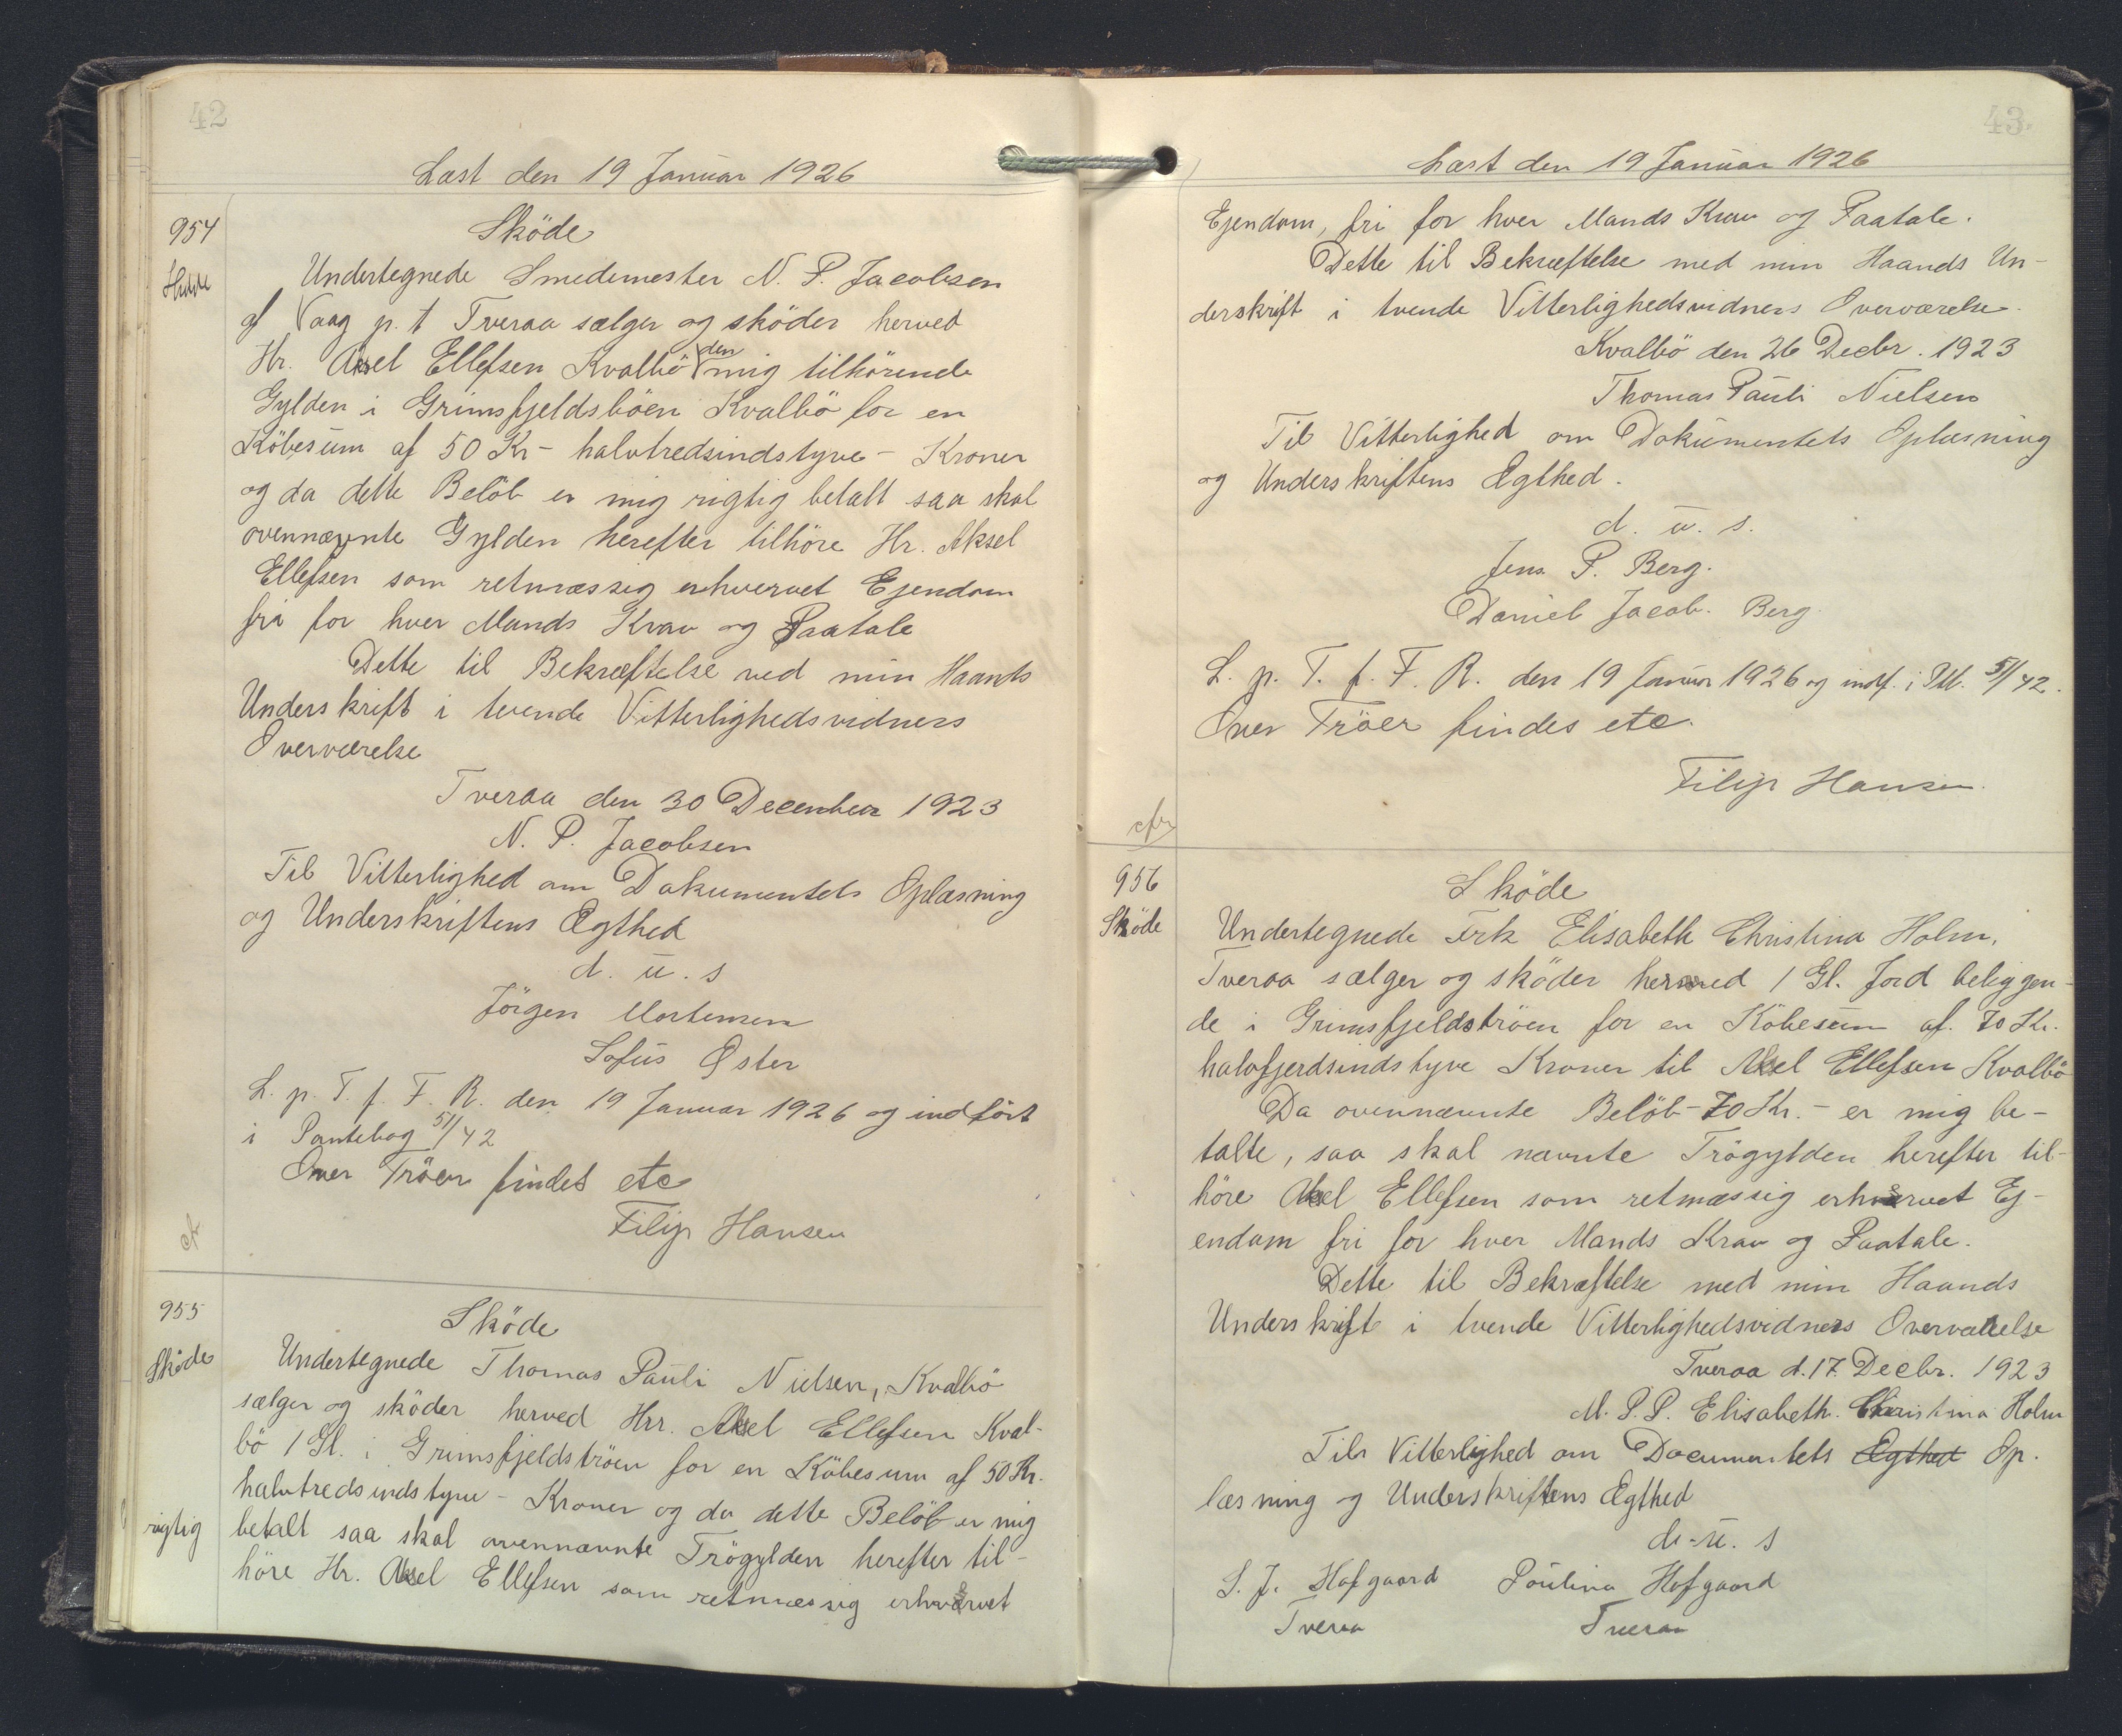 42
Læst den 19 Januar 1926
954
Sköde
Undertegnede Smedemester N. P. Jacobsen
af Vaag p. t Tveraa sælger og sköder herved
Hr. Aksel Ellefsen Kvalbö den mig tilhörende
Gylden i Grimsfjeldsböen Kvalbö for en
Köbesum af 50 Kr - halvtredsindstyve - Kroner
og da dette Belöb er mig rigtig betalt saa skal
ovennævnte Gylden herefter tilhöre Hr. Aksel
Ellefsen som retmæssig erhvervet Ejendom
fri for hver Mands Krav og Paatale
Dette til Bekræftelse ved min Haands
Underskrift i tvende Vitterlighedsvidners
Overværelse
Tveraa den 30 December 1923
N. P. Jacobsen
Til Vitterlighed om Dokumentets Oplæsning
og Underskriftens Ægthed
d. u. s
Jörgen Mortensen
Sofus Øster
L. p. T. f. F. R. den 19 Januar 1926 og indfört
i Pantebog 51/42
Over Tröen findes etc
Filip Hansen
cfr
955
Sköde
Sköde
Undertegnede Thomas Pauli Nielsen, Kvalbö
sælger og sköder herved Hrr. Aksel Ellefsen Kval-
bö 1 Gl. i Grimsfjeldströen for en Köbesum af 50 Kr.
halvtredsindstyve - Kroner og da dette Belöb er mig
rigtig betalt saa skal ovennævnte Trögylden herefter til-
höre Hr. Aksel Ellefsen som retmæssig erhvervet
43.
Læst den 19 Januar 1926
Ejendom, fri for hver Mands Krav og Paatale.
Dette til Bekræftelse med min Haands Un-
derskrift i tvende Vitterlighedsvidners Overværelse.
Kvalbö den 26 Decbr. 1923
Thomas Pauli Nielsen
Til Vitterlighed om Dokumentets Oplæsning
og Underskriftens Ægthed.
d. u. s.
Jens P. Berg.
Daniel Jacob. Berg.
L. p. T. f. F. R. den 19 Januar 1926 og indf. i Ptb. 51/42.
Over Tröer findes etc.
Filip Hansen.
cfr
956
Sköde
Sköde
Undertegnede Frk Elisabeth Christina Holm,
Tveraa sælger og sköder hermed 1 Gl. Jord beliggen-
de i Grimsfjeldströen for en Köbesum af. 70 Kr.
halvfjerdsindstyve Kroner til Aksel Ellefsen Kvalbö
Da ovennævnte Belöb - 70 Kr. - er mig be-
talte, saa skal nævnte Trögylden herefter til-
höre Aksel Ellefsen som retmæssig erhvervet Ej-
endom fri for hver Mands Krav og Paatale.
Dette til Bekræftelse med min Haands
Underskrift i tvende Vitterlighedsvidners Overværelse
Tveraa d. 17. Decbr. 1923
M. P. P. Elisabeth. Christina Holm
Til Vitterlighed om Documentets Ægthed Op.
læsning og Underskriftens Ægthed
d. u. s
S. J. Hofgaard Poulina Hofgaard
Tveraa Tveraa